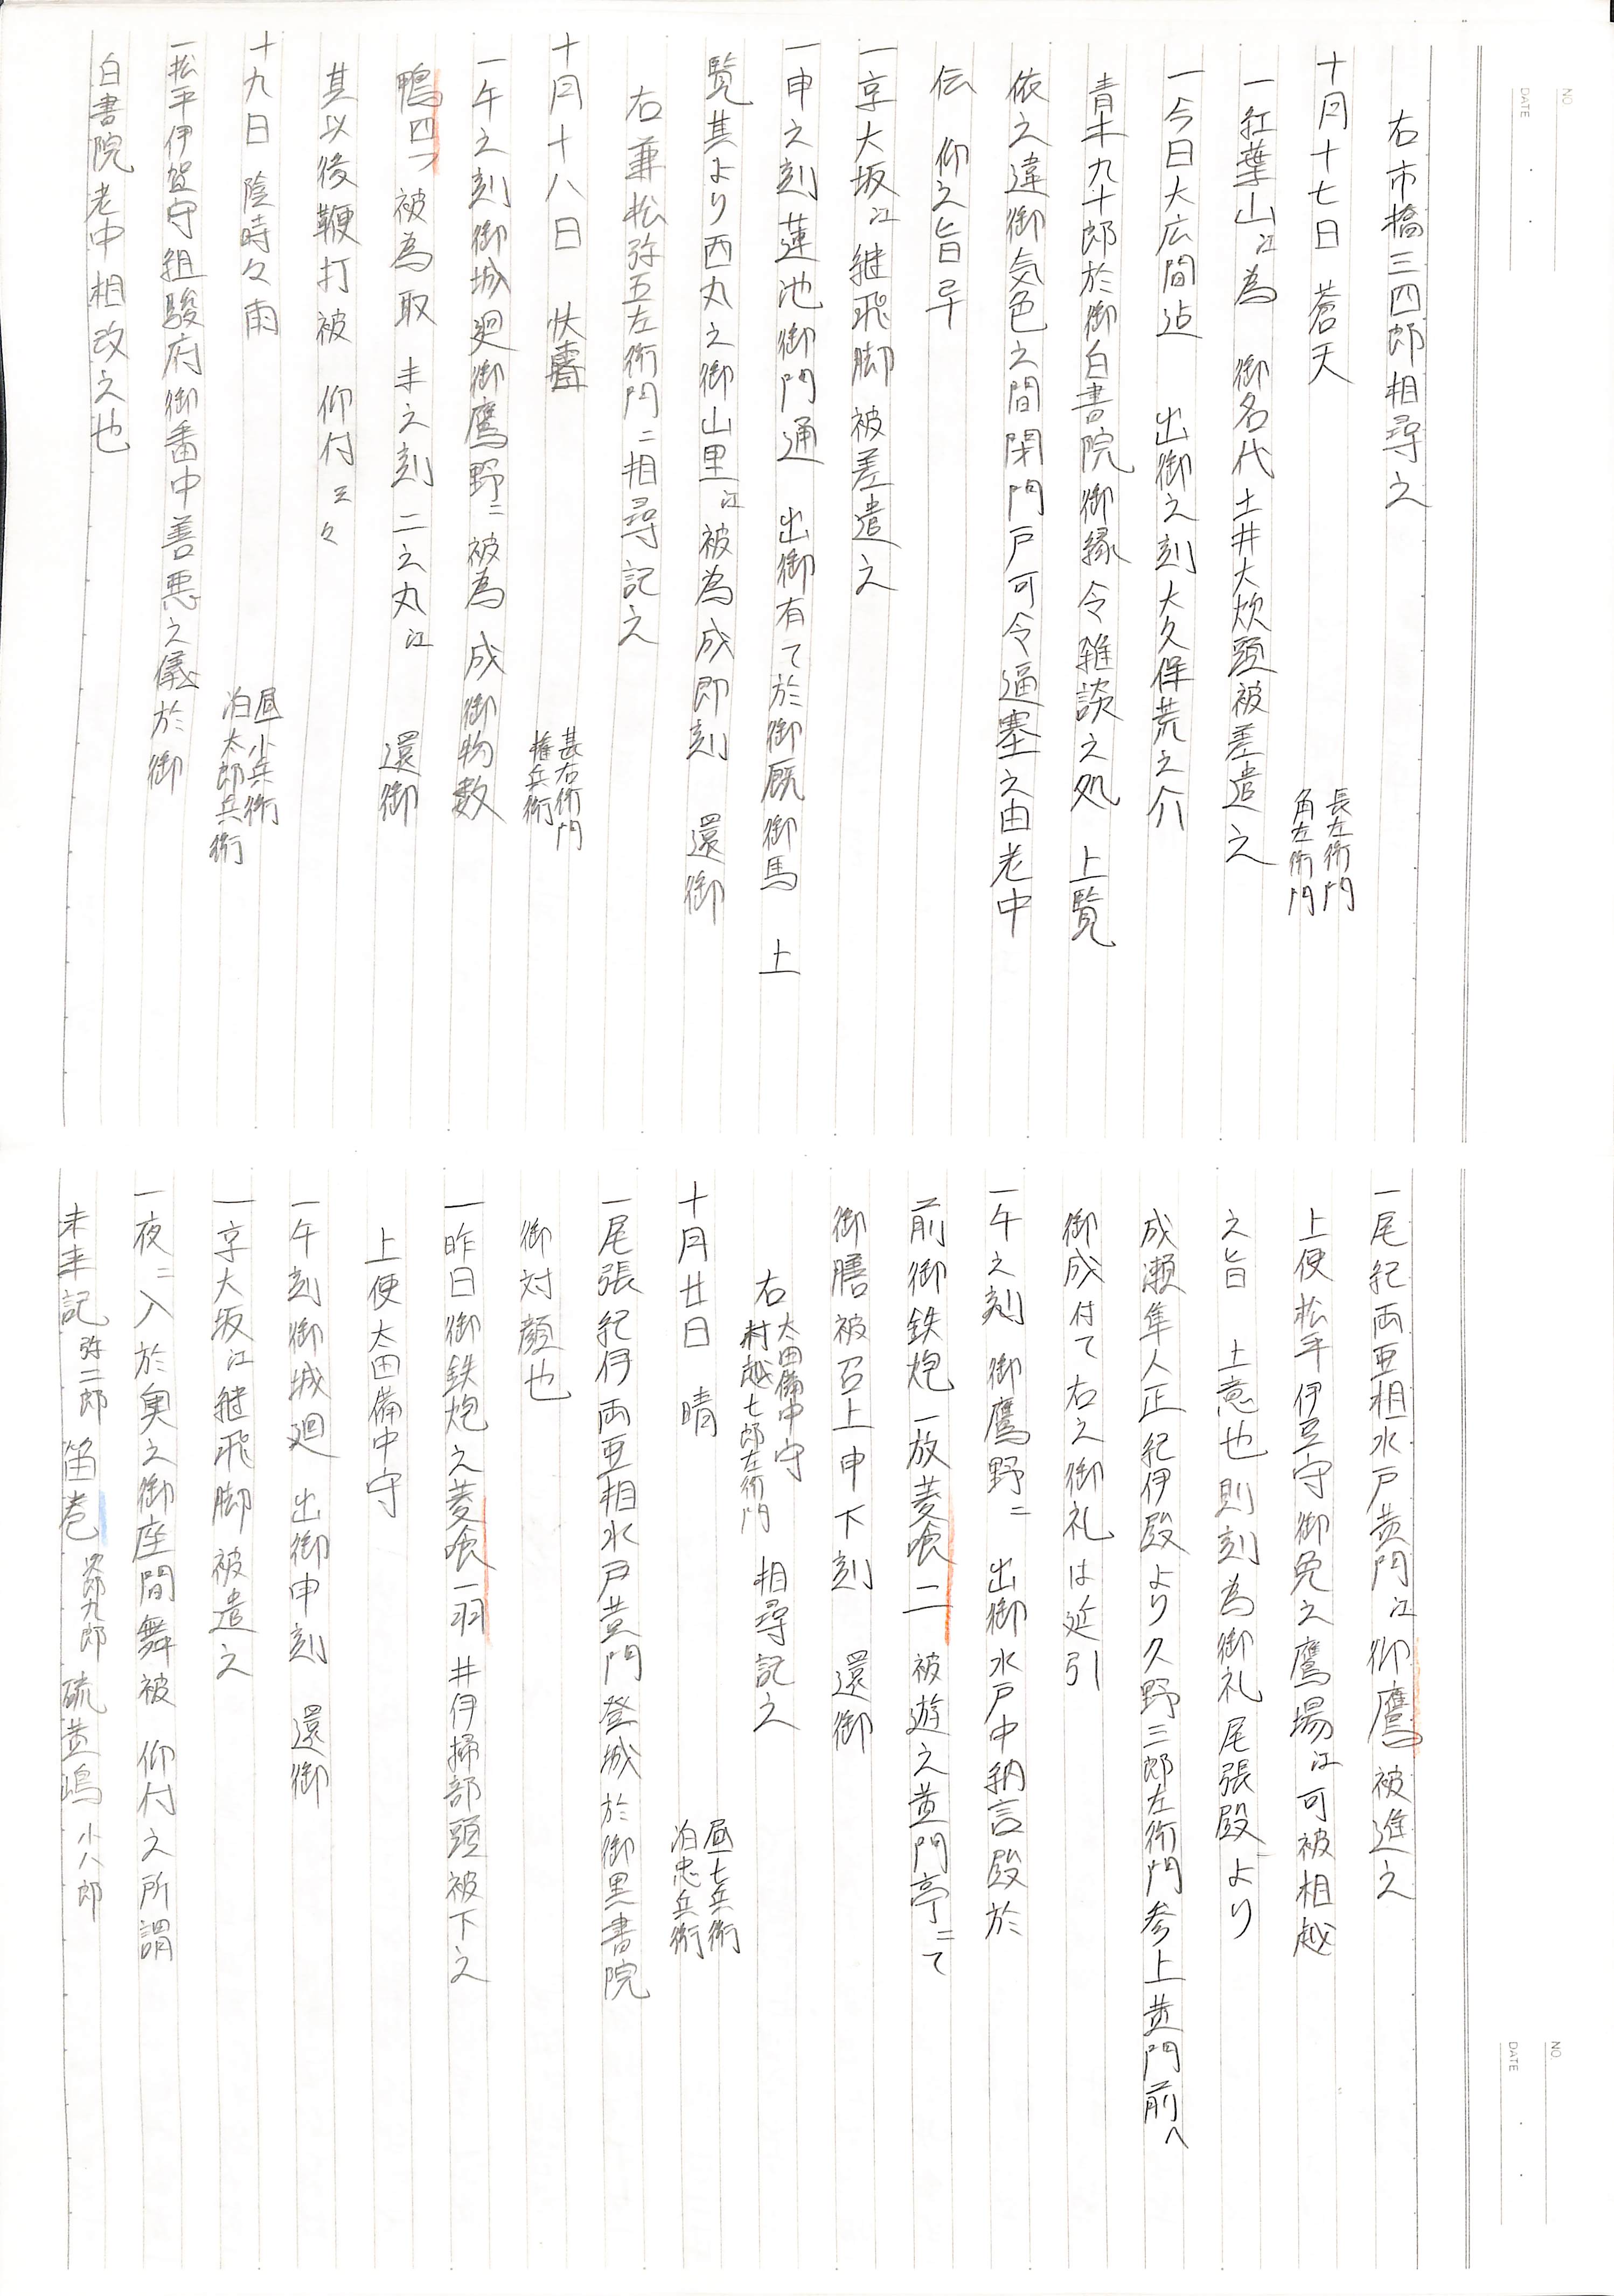 NO.
DATE
右市橋三四郎相尋之
十月十七日 蒼天 長左衛門 角左衛門
一紅葉山江為 御名代土井大炊頭被差遣之
一今日大広間迠 出御之刻大久保荒之介
青木九十郎於御白書院御縁令雑談之処 上覧
依之違御気色之間閉門戸可令逼塞之由老中
伝 仰之旨畢
一京大坂江継飛脚被差遣之
一申之刻蓮池御門通 出御有て於御厩御馬 上
覧其より西丸之御山里江被為成即刻 還御
右兼松弥五左衛門ニ相尋記之
十月十八日 快霽 甚右衛門 権兵衛
一午之刻御城廻御鷹野ニ被為 成御物数
鴨四つ被為取 未之刻二之丸江 還御
其以後鞭打被 仰付云々
十九日 陰時々雨 昼小兵衛 泊太郎兵衛
一松平伊賀守組駿府御番中善悪之儀於御
白書院老中相改之也
NO.
DATE
一尾紀両亜相水戸黄門江御鷹被進之
上使松平伊豆守御免之鷹場江可被相越
之旨 上意也則刻為御礼尾張殿より
成瀬隼人正紀伊殿より久野三郎左衛門参上黄門前へ
御成付て右之御礼は延引
一午之刻 御鷹野ニ 出御水戸中納言殿於
前御鉄炮一放菱喰二被遊之黄門亭ニて
御膳被召上申下刻 還御
右 太田備中守 村越七郎左衛門 相尋記之
十月廿日 晴 昼七兵衛 泊忠兵衛
一尾張紀伊両亜相水戸黄門登城於御黒書院
御対顔也
一昨日御鉄炮之菱喰一羽井伊掃部頭被下之
上使太田備中守
一午刻御城廻 出御申刻 還御
一京大坂江継飛脚被遣之
一夜ニ入於奥之御座間舞被 仰付之所謂
未来記 弥二郎 笛巻 次郎九郎 硫黄嶋 小八郎